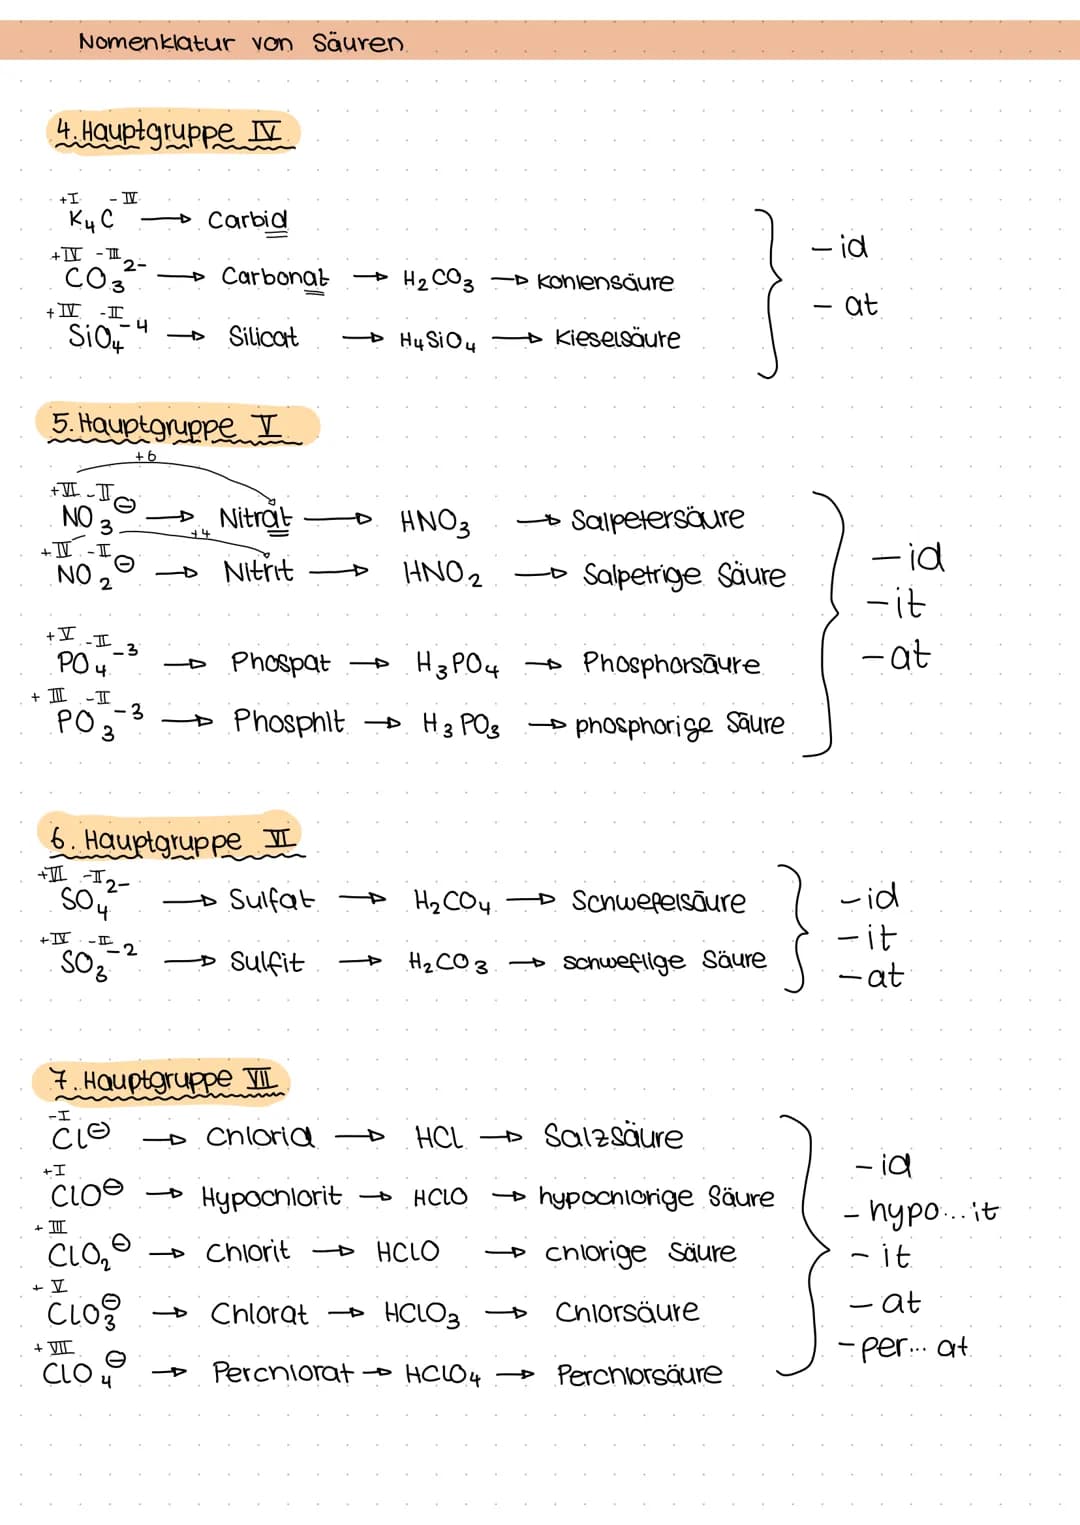 Nomenklatur von Säuren
4. Hauptgruppe IV
+I -IV
K₄C → Carbid
+IV -III
CO₃²⁻ → Carbonat → H₂CO₃ → Kohlensäure
+IV -II
SiO₄⁻⁴ → Silicat → H₄SiO₄ → Kieselsäure
- id
- at
5. Hauptgruppe V
+6
+VI -II
NO₃⊖ → Nitrat → HNO₃ → Salpetersäure
+4
+IV -II
NO₂⊖ → Nitrit → HNO₂ → Salpetrige Säure
+V -II
PO₄⁻³ → Phospat → H₃PO₄ → Phosphorsäure
+III -II
PO₃⁻³ → Phosphit → H₃PO₃ → phosphorige Säure
- id
- it
- at
6. Hauptgruppe VI
+VI -II
SO₄²⁻ → Sulfat → H₂CO₄ → Schwefelsäure
+IV -II
SO₃⁻² → Sulfit → H₂CO₃ → schweflige Säure
- id
- it
- at
7. Hauptgruppe VII
-I
Cl⊖ → Chlorid → HCL → Salzsäure
+I
ClO⊖ → Hypochlorit → HClO → hypochlorige Säure
+III
ClO₂⊖ → Chlorit → HClO → chlorige Säure
+V
ClO₃⊖ → Chlorat → HClO₃ → Chlorsäure
+VII
ClO₄⊖ → Perchlorat → HClO₄ → Perchlorsäure
- id
- hypo...it
- it
- at
- per... at